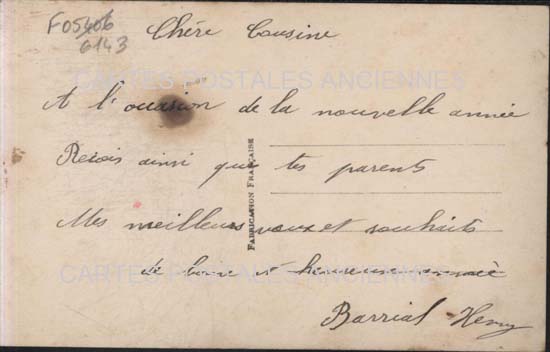 F05406
6143
Chère Cousine
CARTES POSTALES ANCIENNES
A l'occasion de la nouvelle année
Reçois ainsi que tes parents
FABRICATION FRANÇAISE
Mes meilleurs vœux et souhaits
de bonne et heureuse année
CARTES POSTALES ANCIENNES
Barrial Henry